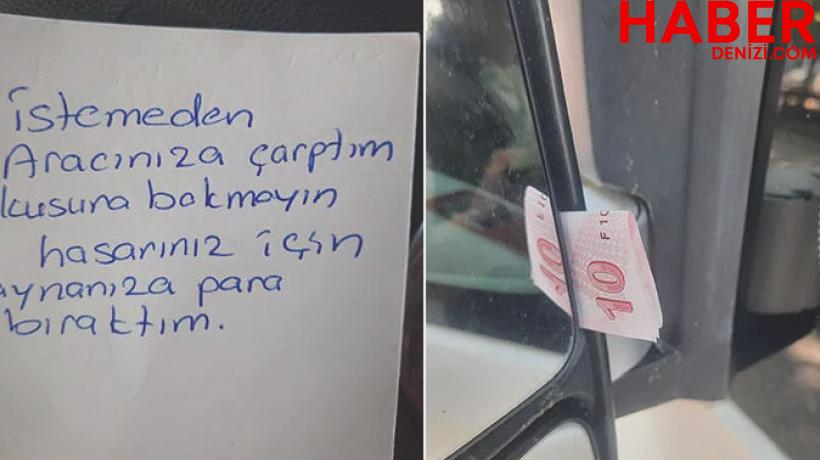 istemeden
Aracınıza çarptım
kusura bakmayın
hasarınız için
aynanıza para
bıraktım.
HABER
DENİZİ.COM
10
F10
10